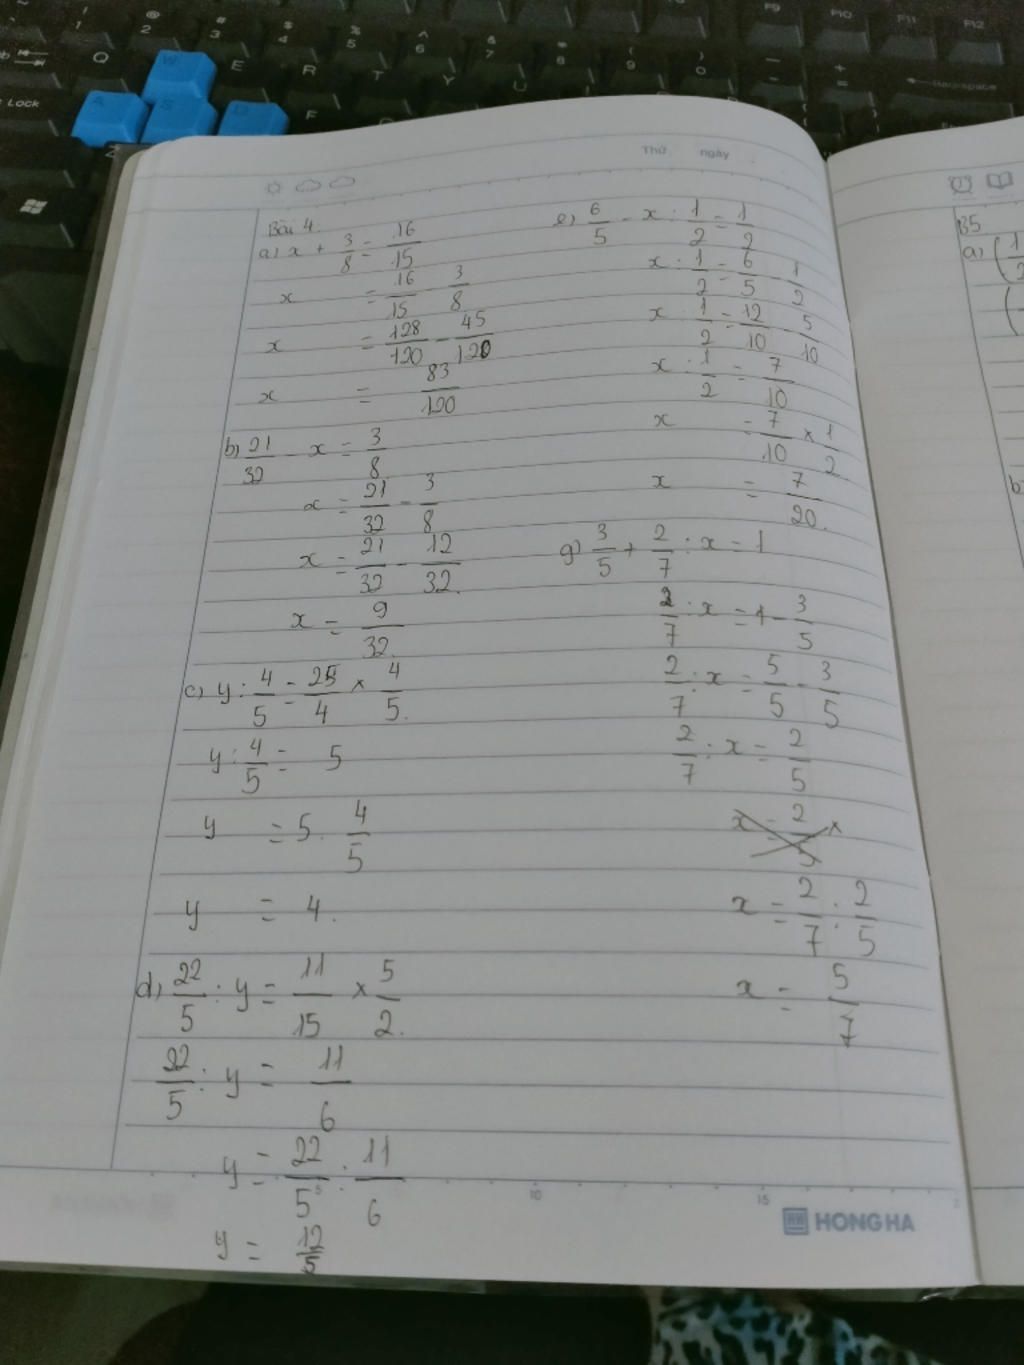 Thứ ngày
Bài 4.
a) x + 3/8 = 16/15
x = 16/15 - 3/8
x = 128/120 - 45/120
x = 83/120
b) 21/32 - x = 3/8
x = 21/32 - 3/8
x = 21/32 - 12/32
x = 9/32
c) y : 4/5 = 25/4 × 4/5
y : 4/5 = 5
y = 5 . 4/5
y = 4.
d) 22/5 : y = 11/15 × 5/2
22/5 : y = 11/6
y = 22/5 : 11/6
y = 12/5
e) 6/5 - x : 1/2 = 1/2
x : 1/2 = 6/5 - 1/2
x : 1/2 = 12/10 - 5/10
x : 1/2 = 7/10
x = 7/10 × 1/2
x = 7/20
g) 3/5 + 2/7 : x = 1
2/7 : x = 1 - 3/5
2/7 : x = 5/5 - 3/5
2/7 : x = 2/5
x = 2/5 ×
x = 2/7 : 2/5
x = 5/7
10 15
HONG HA
B5
a) (1/2
b
Q E R T Y U
F9 F10 F11 F12
Lock